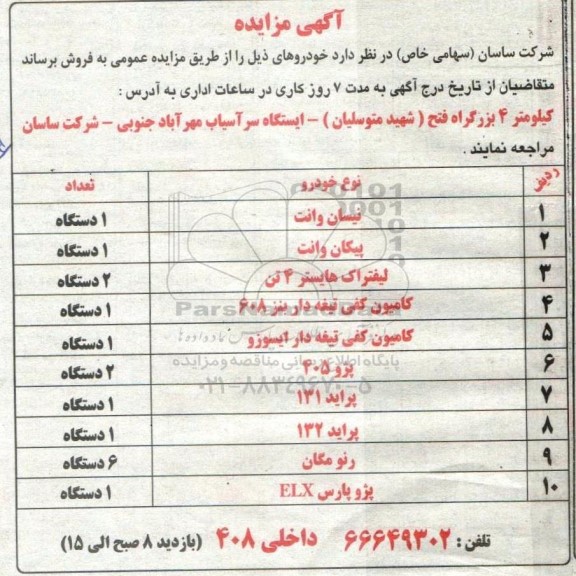 آگهی مزایده
شرکت ساسان (سهامی خاص) در نظر دارد خودروهای ذیل را از طریق مزایده عمومی به فروش برساند
متقاضیان از تاریخ درج آگهی به مدت ۷ روز کاری در ساعات اداری به آدرس :
کیلومتر ۴ بزرگراه فتح ( شهید متوسلیان ) - ایستگاه سرآسیاب مهرآباد جنوبی - شرکت ساسان
مراجعه نمایند .
ردیف نوع خودرو تعداد
۱ نیسان وانت ۱ دستگاه
۲ پیکان وانت ۱ دستگاه
۳ لیفتراک هایستر ۴ تن ۲ دستگاه
۴ کامیون کفی تیغه دار بنز ۶۰۸ ۱ دستگاه
۵ کامیون کفی تیغه دار ایسوزو ۱ دستگاه
۶ پژو ۴۰۵ ۲ دستگاه
۷ پراید ۱۳۱ ۱ دستگاه
۸ پراید ۱۳۲ ۱ دستگاه
۹ رنو مگان ۶ دستگاه
۱۰ پژو پارس ELX ۱ دستگاه
تلفن : ۶۶۶۴۹۳۰۲ داخلی ۴۰۸ (بازدید ۸ صبح الی ۱۵)
پایگاه اطلاع رسانی مناقصه و مزایده
۰۲۱-۸۸۳۴۹۶۷۰-۵